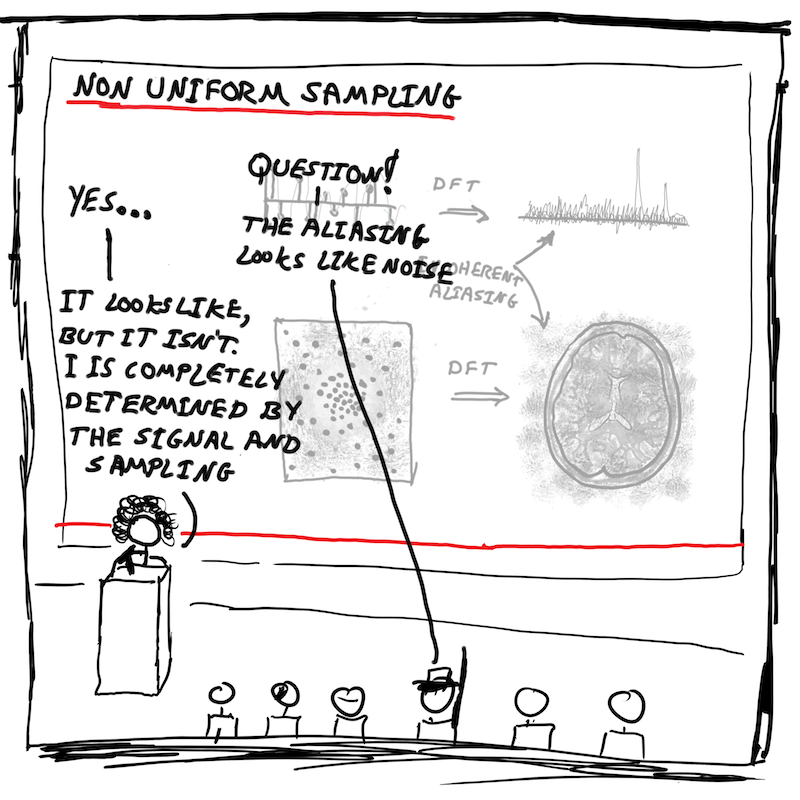 NON UNIFORM SAMPLING
QUESTION!
YES...
THE ALIASING
LOOKS LIKE NOISE
IT LOOKS LIKE,
BUT IT ISN'T.
I IS COMPLETELY
DETERMINED BY
THE SIGNAL AND
SAMPLING
DFT
INCOHERENT
ALIASING
DFT